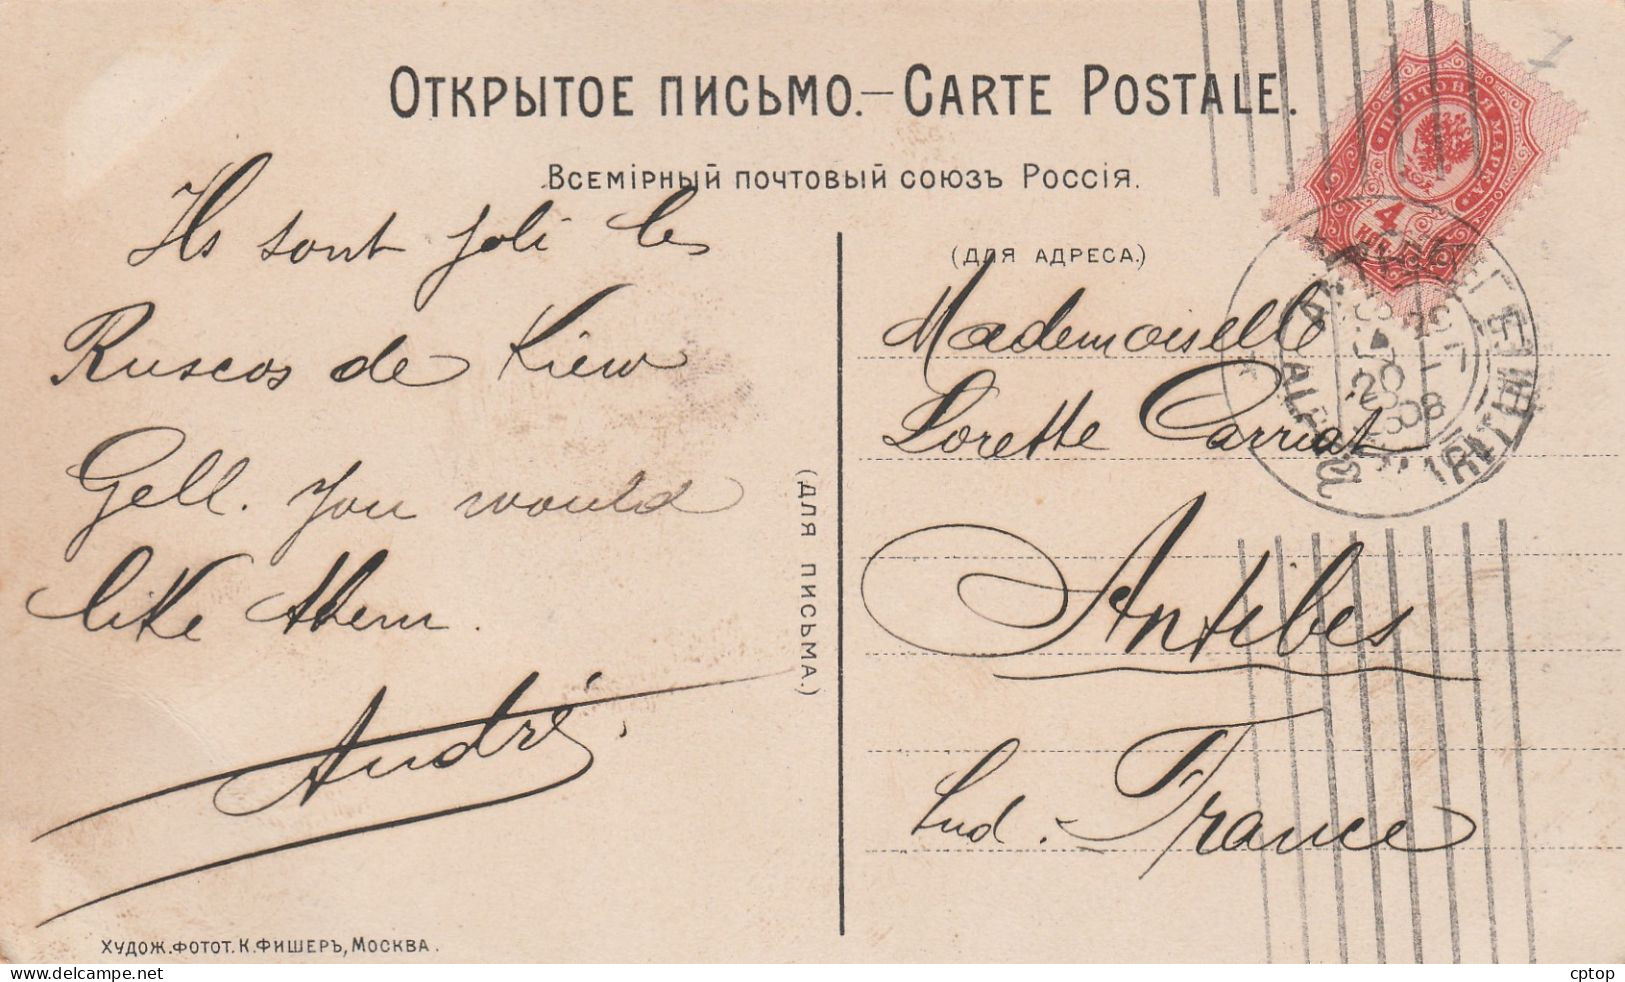 ОТКРЫТОЕ ПИСЬМО.—CARTE POSTALE.
Всемірный почтовый союзъ Россія.
(для адреса.)
Ils sont joli les
Ruscos de Kiew
Gell. You would
like them.
André.
(для письма.)
Mademoiselle
Lorette Carriat
Antibes
Sud - France
ПОЧТОВАЯ МАРКА
4
Худож. фотот. К. Фишеръ, Москва.
cptop